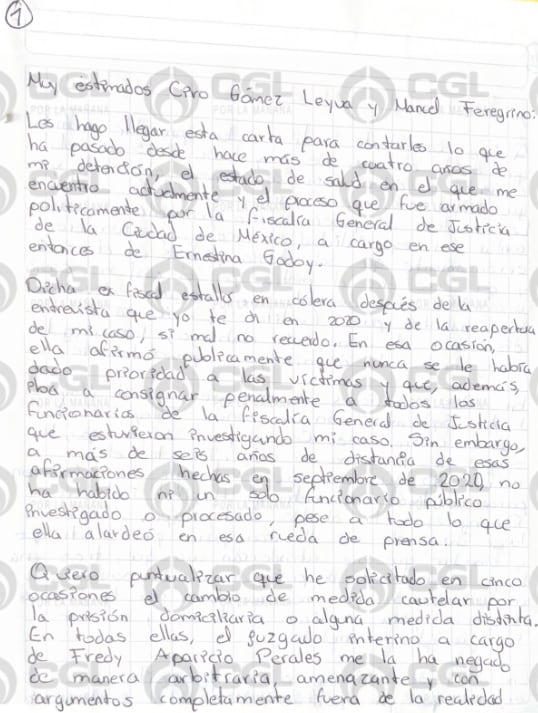 1
Muy estimados Ciro Gómez Leyva y Manuel Feregrino:
Les hago llegar esta carta para contarles lo que
ha pasado desde hace más de cuatro años de
mi detención, el estado de salud en el que me
encuentro actualmente y el proceso que fue armado
políticamente por la Fiscalía General de Justicia
de la Ciudad de México, a cargo en ese
entonces de Ernestina Godoy.
Dicha ex fiscal estalló en cólera después de la
entrevista que yo te di en 2020 y de la reapertura
de mi caso, si mal no recuerdo. En esa ocasión,
ella afirmó públicamente que nunca se le habra
dado prioridad a las víctimas y que, además,
iba a consignar penalmente a todos los
funcionarios de la fiscalía General de Justicia
que estuvieron investigando mi caso. Sin embargo,
a más de seis años de distancia de esas
afirmaciones hechas en septiembre de 2020, no
ha habido ni un solo funcionario público
investigado o procesado, pese a todo lo que
ella alardeó en esa rueda de prensa.
Quiero puntualizar que he solicitado en cinco
ocasiones el cambio de medida cautelar por
la prisión domiciliaria o alguna medida distinta.
En todas ellas, el juzgado interino a cargo
de Fredy Aparicio Perales me la ha negado
de manera arbitraria, amenazante y con
argumentos completamente fuera de la realidad
CGL
POR LA MAÑANA